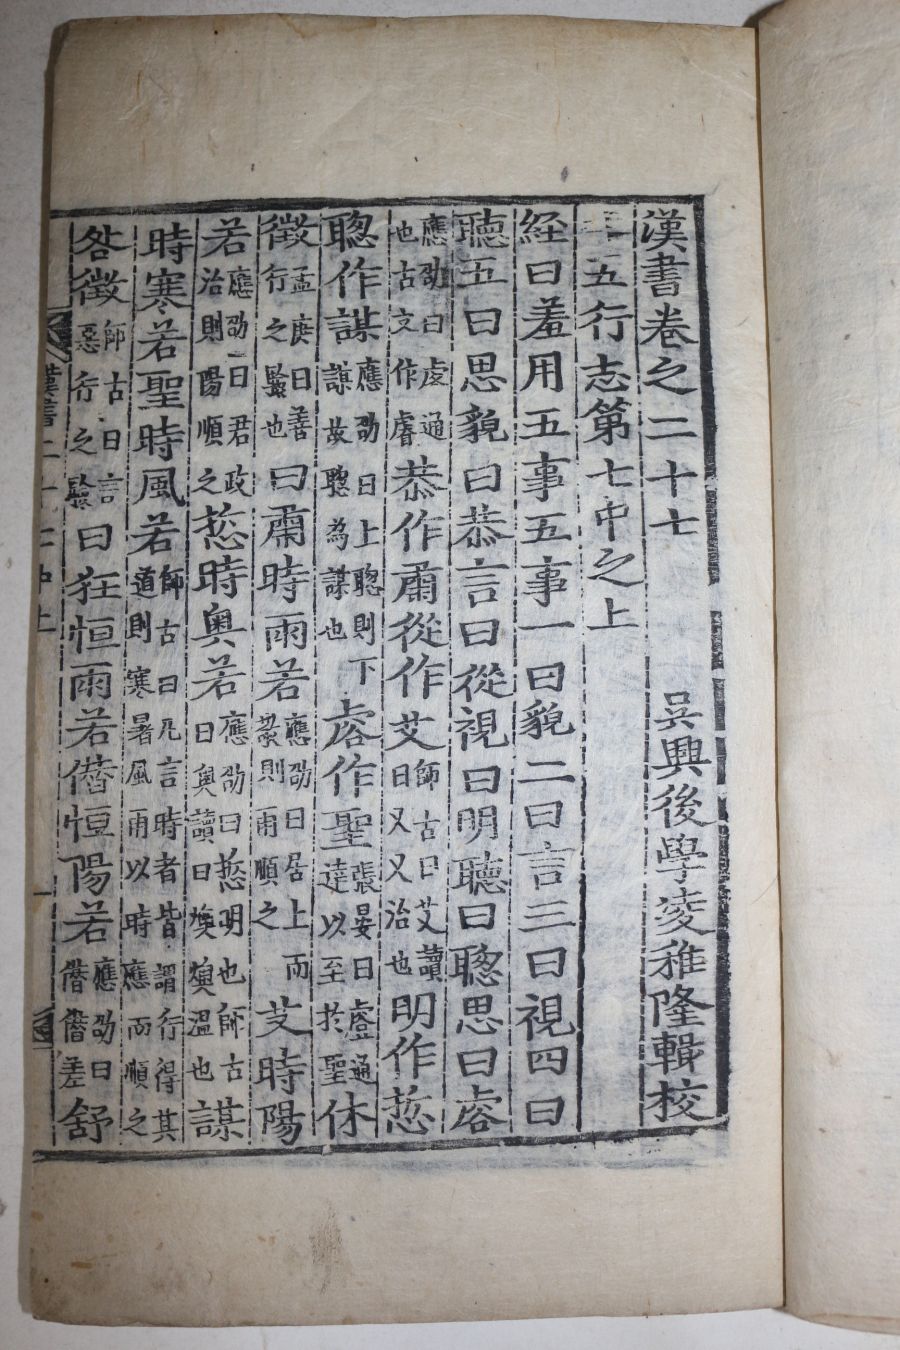 漢書卷之二十七　吳興後學凌稚隆輯校
五行志第七中之上
経曰羞用五事五事一曰貌二曰言三曰視四曰
聽五曰思貌曰恭言曰從視曰明聽曰聰思曰睿
應劭曰虗通也古文作睿恭作肅從作艾師古曰艾讀曰乂乂治也明作悊
聰作謀應劭曰上聰則下謀故聰為謀也睿作聖張晏曰睿通達以至於聖休
徵孟康曰善行之驗也曰肅時雨若應劭曰居上而敬則雨順之艾時陽
若應劭曰君政治則陽順之悊時奥若應劭曰悊明也師古曰奥讀曰燠燠温也謀
時寒若聖時風若師古曰凡言時者皆謂行得其道則寒暑風雨以時應而順之
咎徵師古曰言惡行之驗曰狂恒雨若僭恒陽若應劭曰僭僭差舒
漢書二十七中上